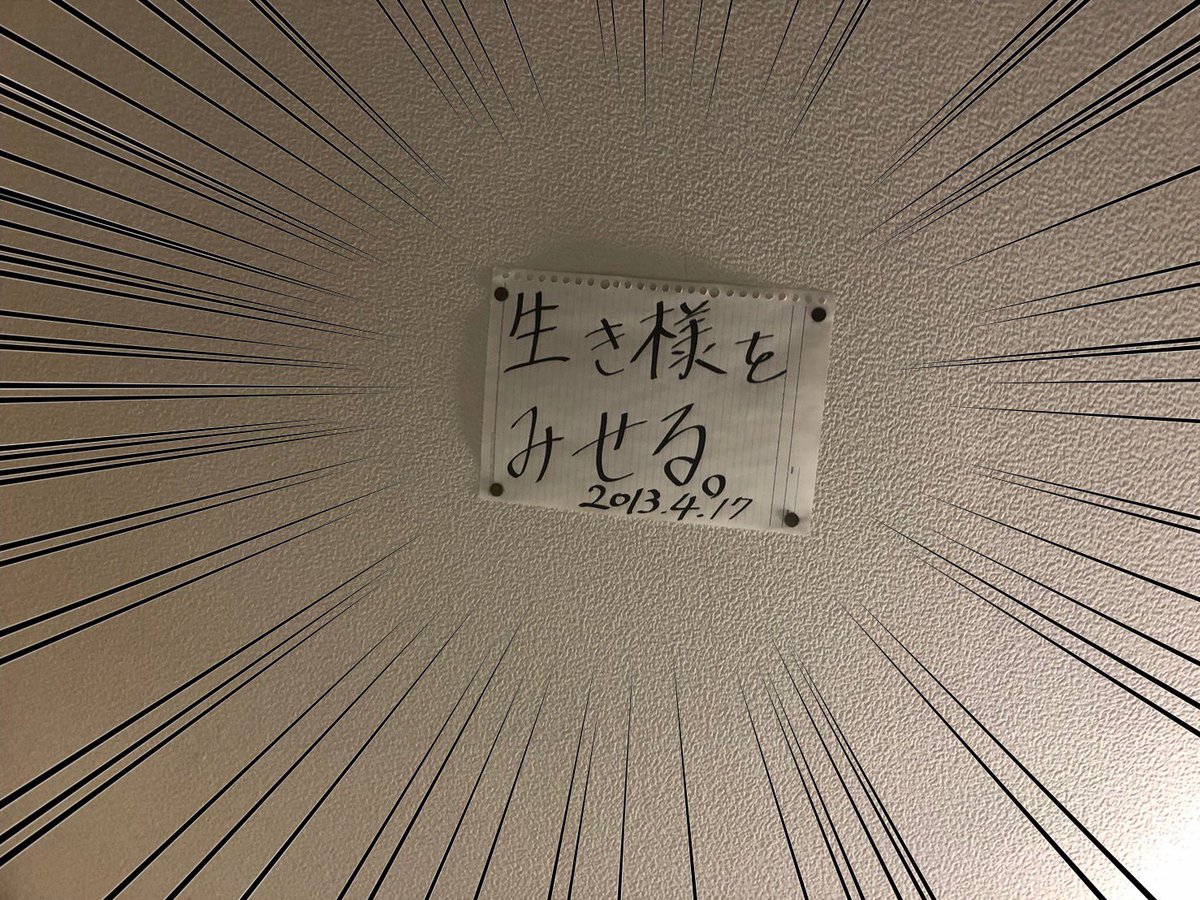 生き様を
みせる。
2013.4.17